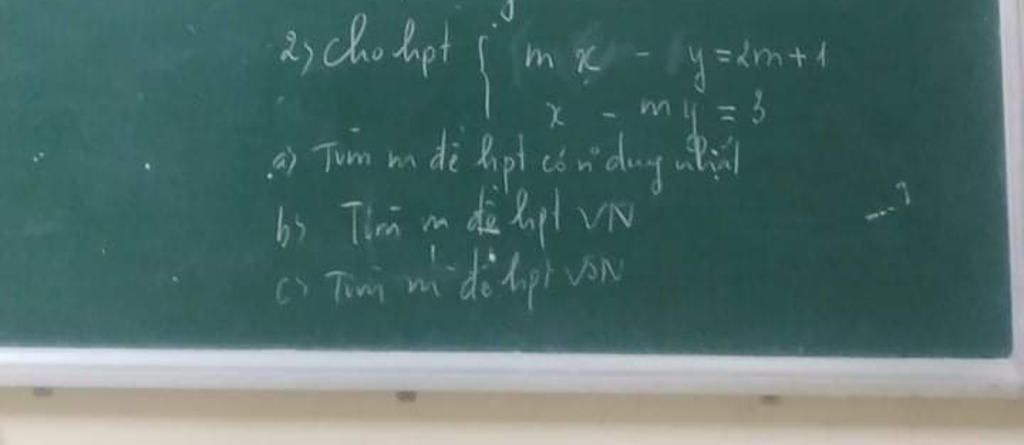 2) Cho hpt { mx - y = 2m + 1
x - my = 3
a) Tìm m để hpt có n° duy nhất
b) Tìm m để hpt VN
c) Tìm m để hpt VSN